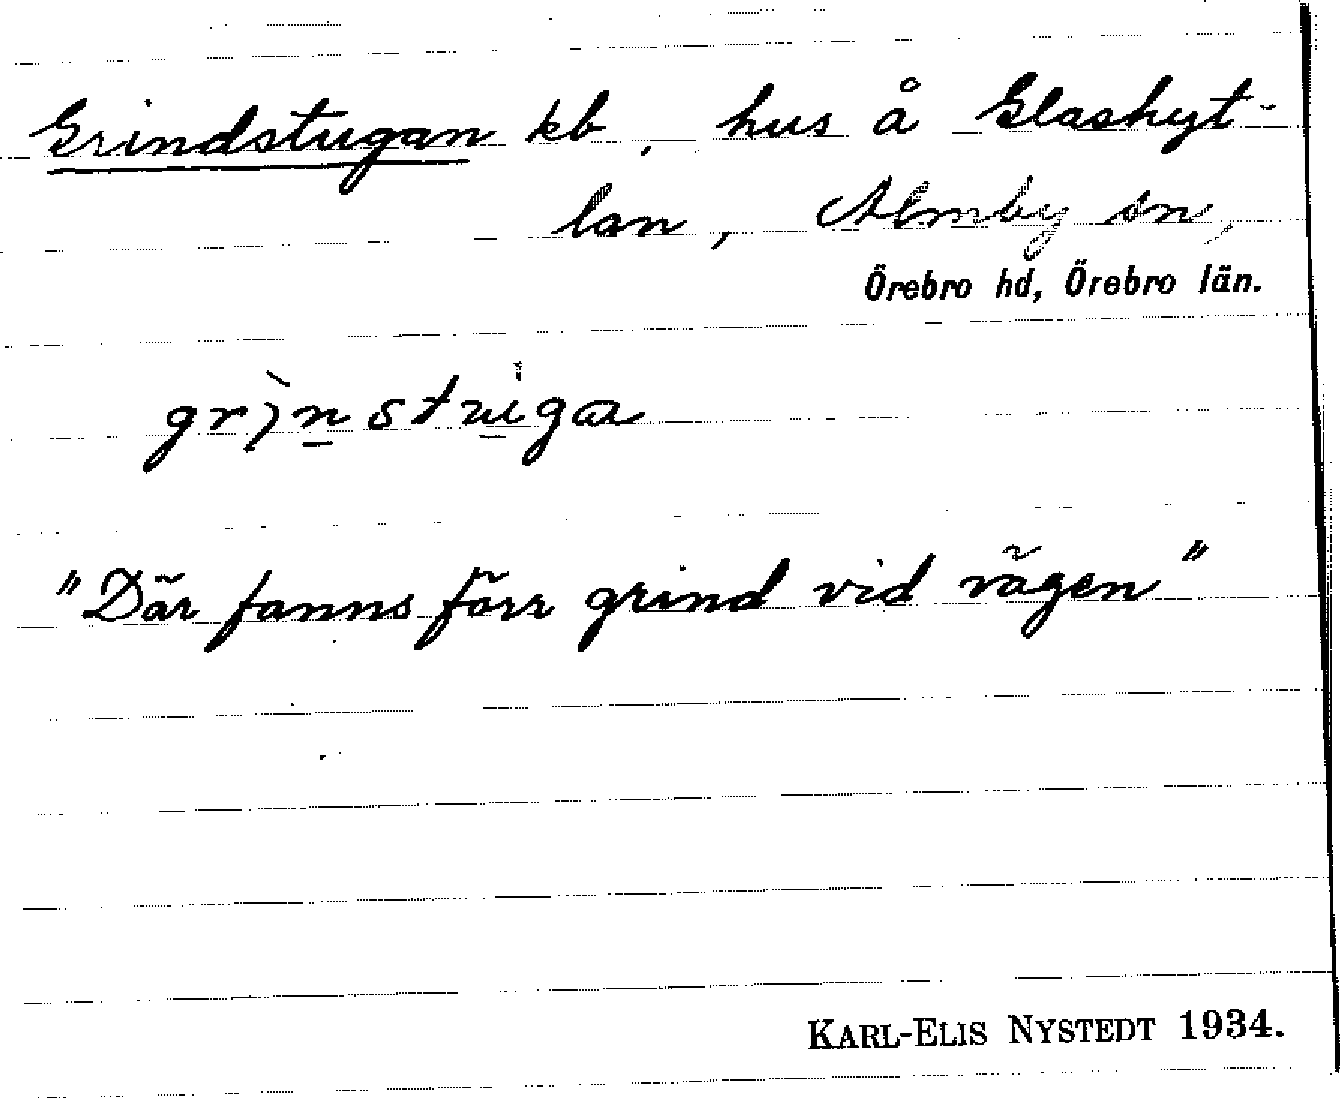 Grindstugan kb, hus å Glashyt-
lan, Almby sn,
Örebro hd, Örebro län.
"Där fanns förr grind vid vägen"
KARL-ELIS NYSTEDT 1934.